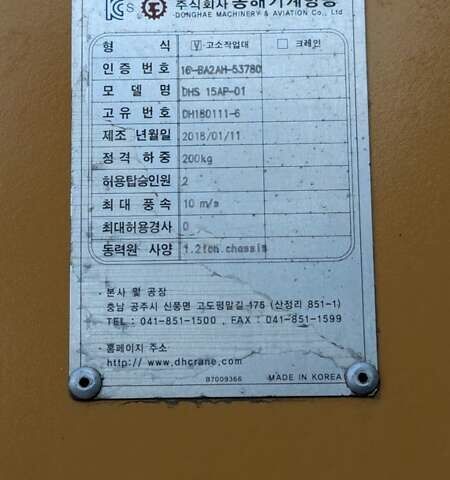 KCs 주식회사 동해기계항공
DONGHAE MACHINERY & AVIATION Co., Ltd
형 식 V 고소작업대 크레인
인증 번호 16-BA2AH-53780
모 델 명 DHS 15AP-01
고유 번호 DH180111-6
제조 년월일 2018/01/11
정격 하중 200kg
허용탑승인원 2
최 대 풍속 10 m/s
최대허용경사 0
동력원 사양 1.2ton chassis
· 본사 및 공장
충남 공주시 신풍면 고도평말길 176 (산정리 851-1)
TEL : 041-851-1500 , FAX : 041-851-1599
· 홈페이지 주소
http:// www.dhcrane.com
B7009366 MADE IN KOREA